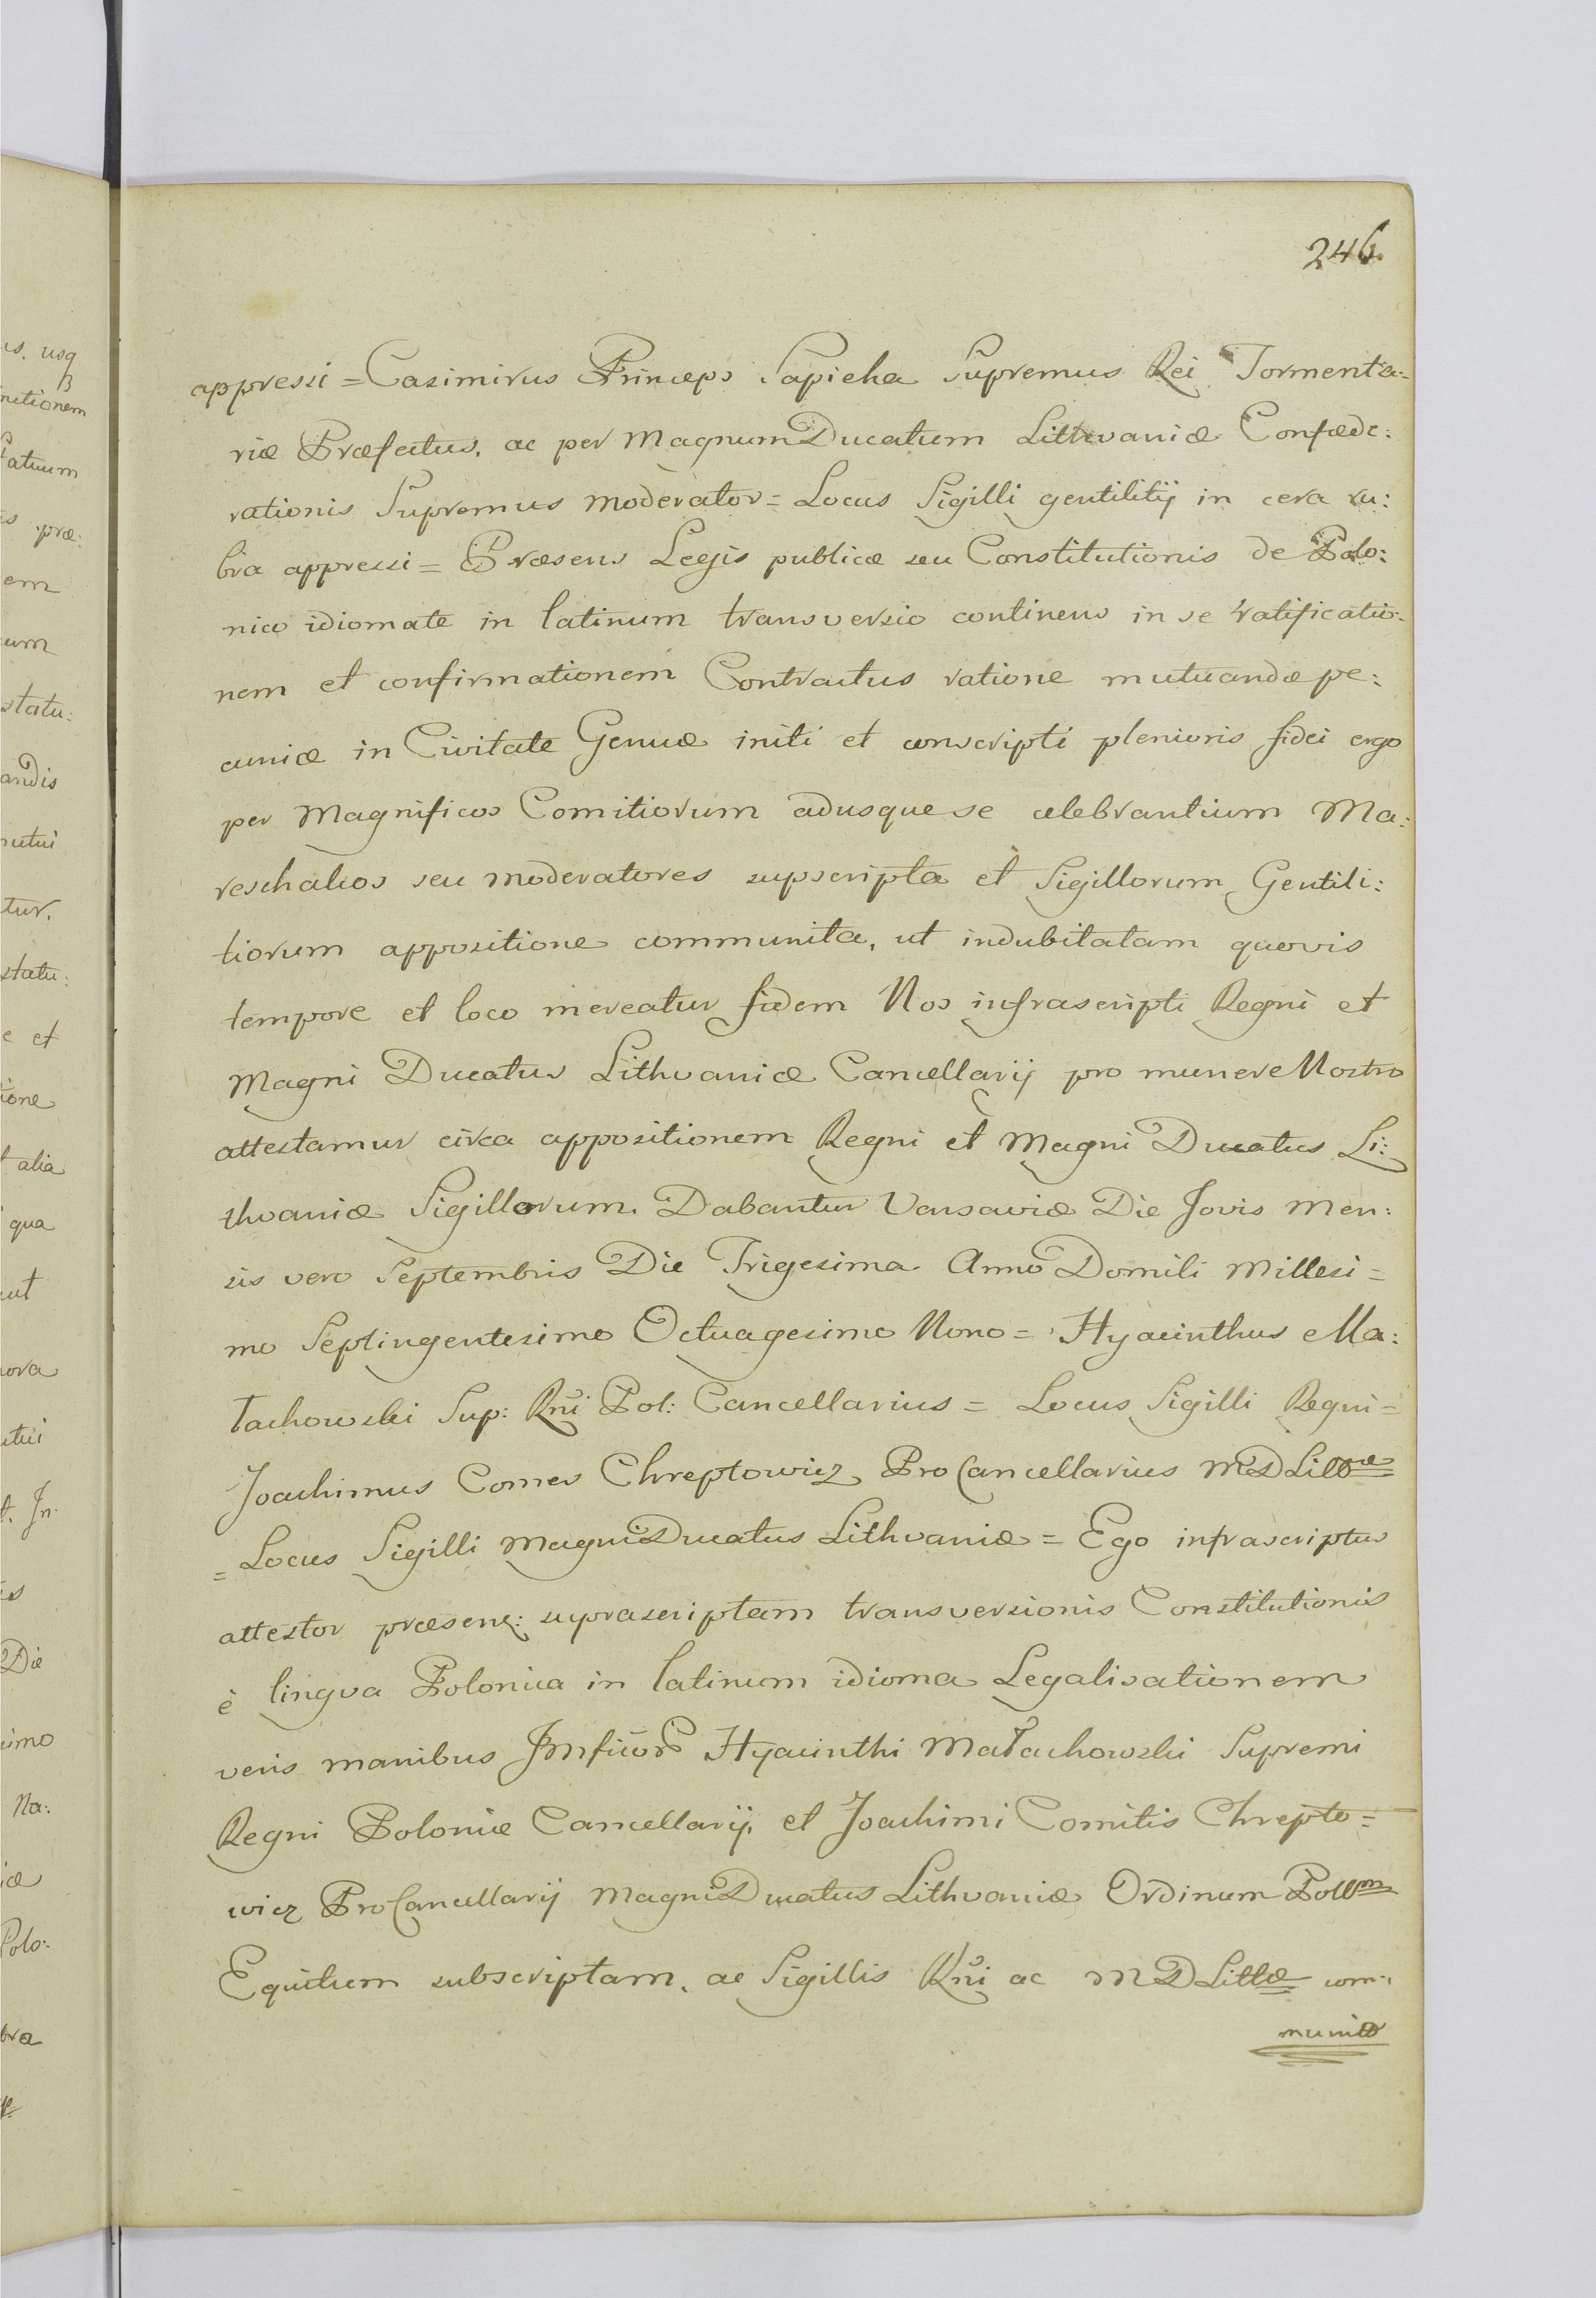 246.
appressi = Casimirus Princeps Sapieha Supremus Rei Tormenta-
riæ Præfectus, ac per Magnum Ducatum Lithvaniæ Confæde:
rationis Supremus Moderator = Locus Sigilli gentilitij in cera ru:
bra appressi = Præsens Legis publicæ seu Constitutionis de Polo:
nico idiomate in latinum transversio continens in se ratificatio-
nem et confirmationem Contractus ratione mutuandæ pe:
cuniæ in Civitate Genuæ initi et conscripti plenioris fidei ergo
per Magnificos Comitiorum adusque se celebrantium Ma:
reschalcos seu Moderatores supscripta et Sigillorum Gentili:
tiorum appositione communita, ut indubitatam quovis
tempore et loco mereatur fidem Nos infrascripti Regni et
Magni Ducatus Lithvaniæ Cancellarij pro munere Nostro
attestamur circa appositionem Regni et Magni Ducatus Li:
thvaniæ Sigillorum. Dabantur Varsaviæ Die Jovis Men:
sis vero Septembris Die Trigesima Anno Domili Millesi=
mo Septingentesimo Octuagesimo Nono = Hyacinthus Ma:
łachowski Sup: Rni Pol: Cancellarius = Locus Sigilli Regni =
Joachimus Comes Chreptowicz ProCancellarius M D Litt
= Locus Sigilli Magni Ducatus Lithvaniæ = Ego infrascriptus
attestor præsens: suprascriptam transversionis Constitutionis
è lingva Polonica in latinum idioma Legalisationem
veris manibus Hyacinthi Małachowski Supremi
Regni Poloniæ Cancellarij, et Joachimi Comitis Chrepto=
wicz ProCancellarij Magni Ducatus Lithvaniæ Ordinum
Equitum subscriptam, ac Sigillis Rni ac M D Littæ com:
munita
is. usq
nctionem
atuum
is præ:
em
um
statu:
andis
utui
tur.
statu:
e et
ione
t alia
qua
ut
nova
utui
t. In
is
Die
simo
Na:
iæ
Polo:
bra